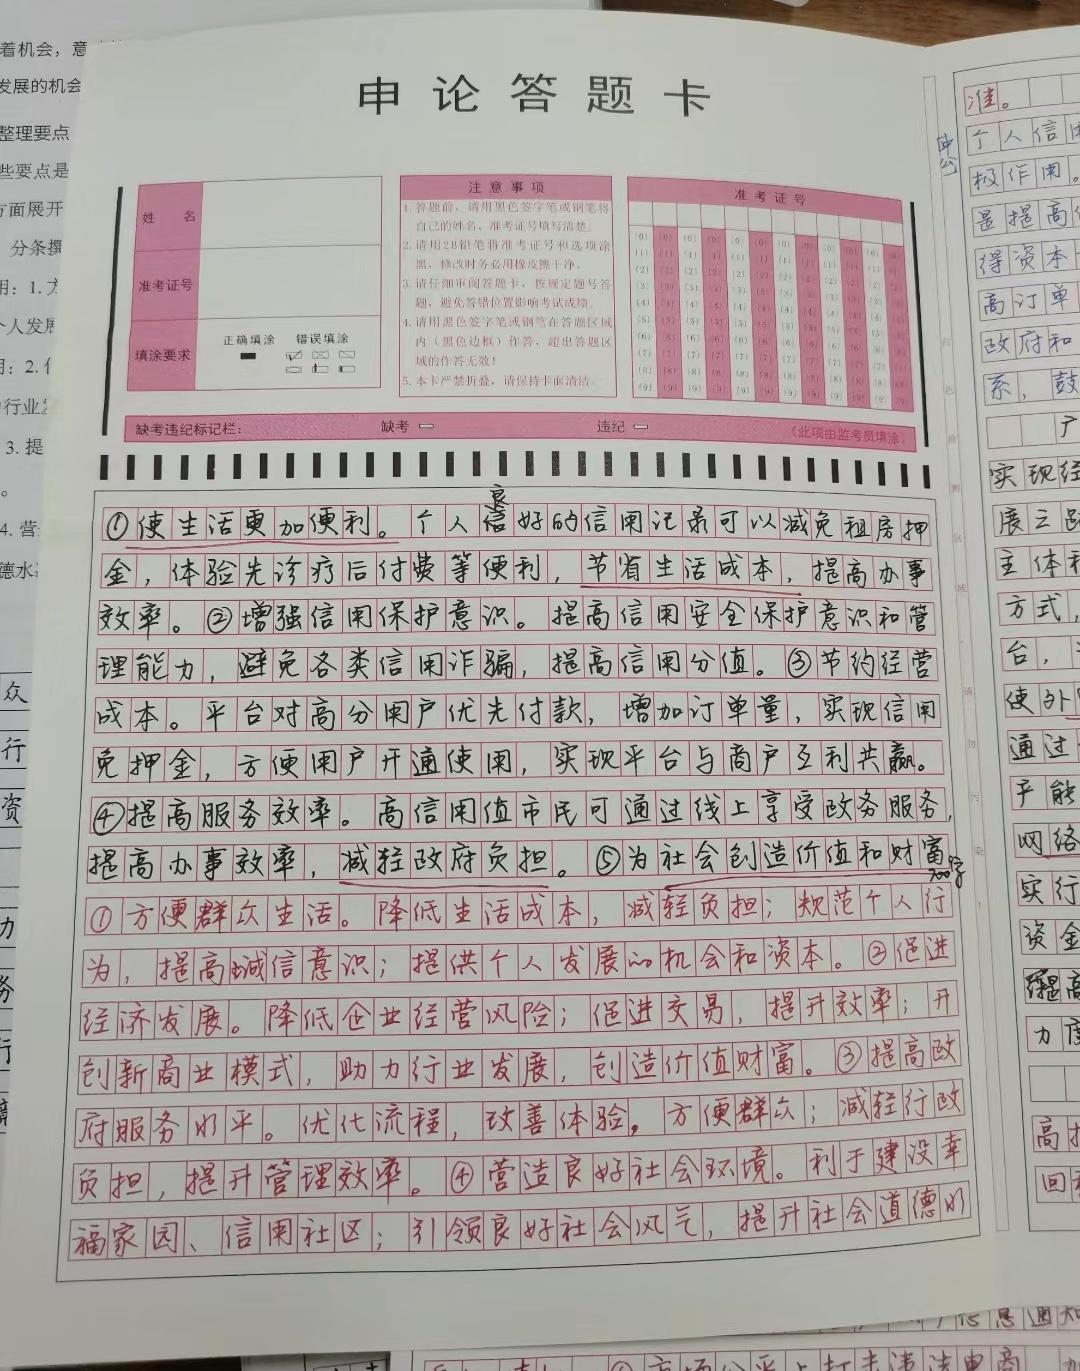 着机会，意
发展的机会
整理要点
些要点是
方面展开
分条撰
用：1.方
个人发展
用：2.
行业发
3.提
。
4.营
德水
众
行
资
力
务
行
申论答题卡
姓 名
准考证号
填涂要求
正确填涂 错误填涂
注意事项
1.答题前，请用黑色签字笔或钢笔将
自己的姓名、准考证号填写清楚。
2.请用2B铅笔将准考证号和选项涂
黑，修改时务必用橡皮擦干净。
3.请仔细审阅答题卡，按规定题号答
题，避免答错位置影响考试成绩。
4.请用黑色签字笔或钢笔在答题区域
内（黑色边框）作答，超出答题区
域的作答无效！
5.本卡严禁折叠，请保持卡面清洁。
准考证号
(0) (0) (0) (0) (0) (0) (0) (0) (0) (0) (0) (0)
(1) (1) (1) (1) (1) (1) (1) (1) (1) (1) (1) (1)
(2) (2) (2) (2) (2) (2) (2) (2) (2) (2) (2) (2)
(3) (3) (3) (3) (3) (3) (3) (3) (3) (3) (3) (3)
(4) (4) (4) (4) (4) (4) (4) (4) (4) (4) (4) (4)
(5) (5) (5) (5) (5) (5) (5) (5) (5) (5) (5) (5)
(6) (6) (6) (6) (6) (6) (6) (6) (6) (6) (6) (6)
(7) (7) (7) (7) (7) (7) (7) (7) (7) (7) (7) (7)
(8) (8) (8) (8) (8) (8) (8) (8) (8) (8) (8) (8)
(9) (9) (9) (9) (9) (9) (9) (9) (9) (9) (9) (9)
缺考违纪标记栏： 缺考 违纪 （此项由监考员填涂）
良
①使生活更加便利。个人信好的信用记录可以减免租房押
金，体验先诊疗后付费等便利，节省生活成本，提高办事
效率。②增强信用保护意识。提高信用安全保护意识和管
理能力，避免各类信用诈骗，提高信用分值。③节约经营
成本。平台对高分用户优先付款，增加订单量，实现信用
免押金，方便用户开通使用，实现平台与商户互利共赢。
④提高服务效率。高信用值市民可通过线上享受政务服务，
提高办事效率，减轻政府负担。⑤为社会创造价值和财富
200字
①方便群众生活。降低生活成本，减轻负担；规范个人行
为，提高诚信意识；提供个人发展的机会和资本。②促进
经济发展。降低企业经营风险；促进交易，提升效率；开
创新商业模式，助力行业发展，创造价值财富。③提高政
府服务水平。优化流程，改善体验，方便群众；减轻行政
负担，提升管理效率。④营造良好社会环境。利于建设幸
福家园、信用社区；引领良好社会风气，提升社会道德水
准。
个人信用
极作用。
是提高
得资本
高订单
政府和
系，鼓
实现经
展之路
主体和
方式，
台，
使外
通过
乎能
网络
实行
资金
提高
力度
高技
回